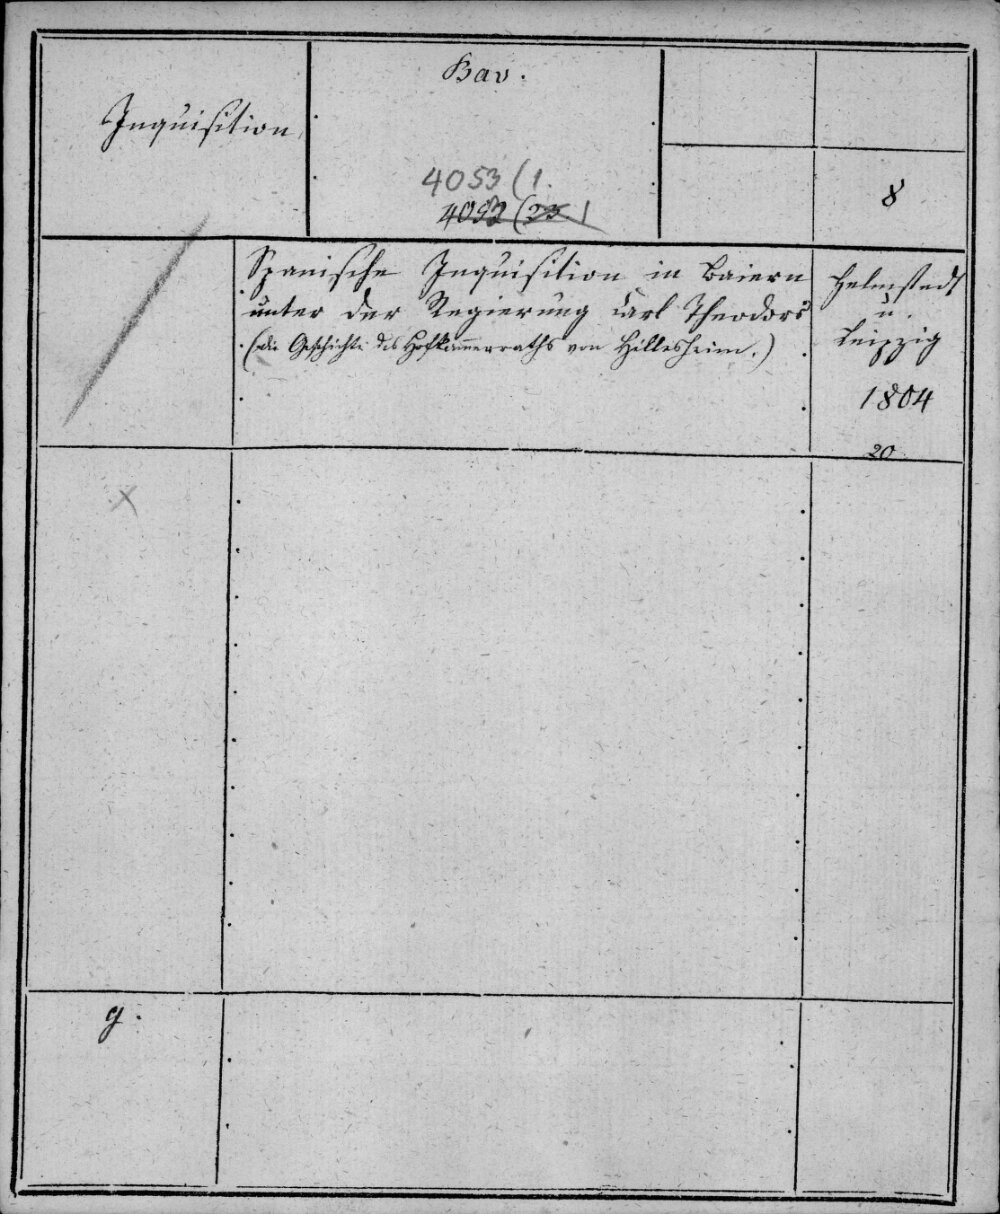 Inquisition,
Bav.
4053 (1.
4092 (23 1
8
Spanische Inquisition in Baiern
unter der Regierung Carl Theodors
(die Geschichte des Hofkammerraths von Hillesheim.)
Helmstedt
u.
Leipzig
1804
20.
x
g.